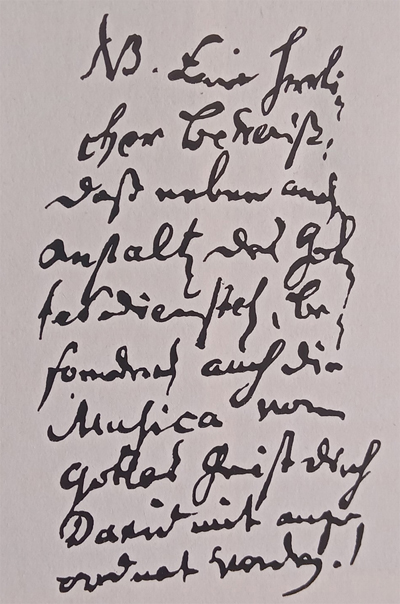 NB. Ein herrli-
cher Beweiß,
daß neben andern
anstalten des Got-
tesdienstes, be-
sonders auch die
Musica von
Gottes Geist durch
David mit ange-
ordnet worden.